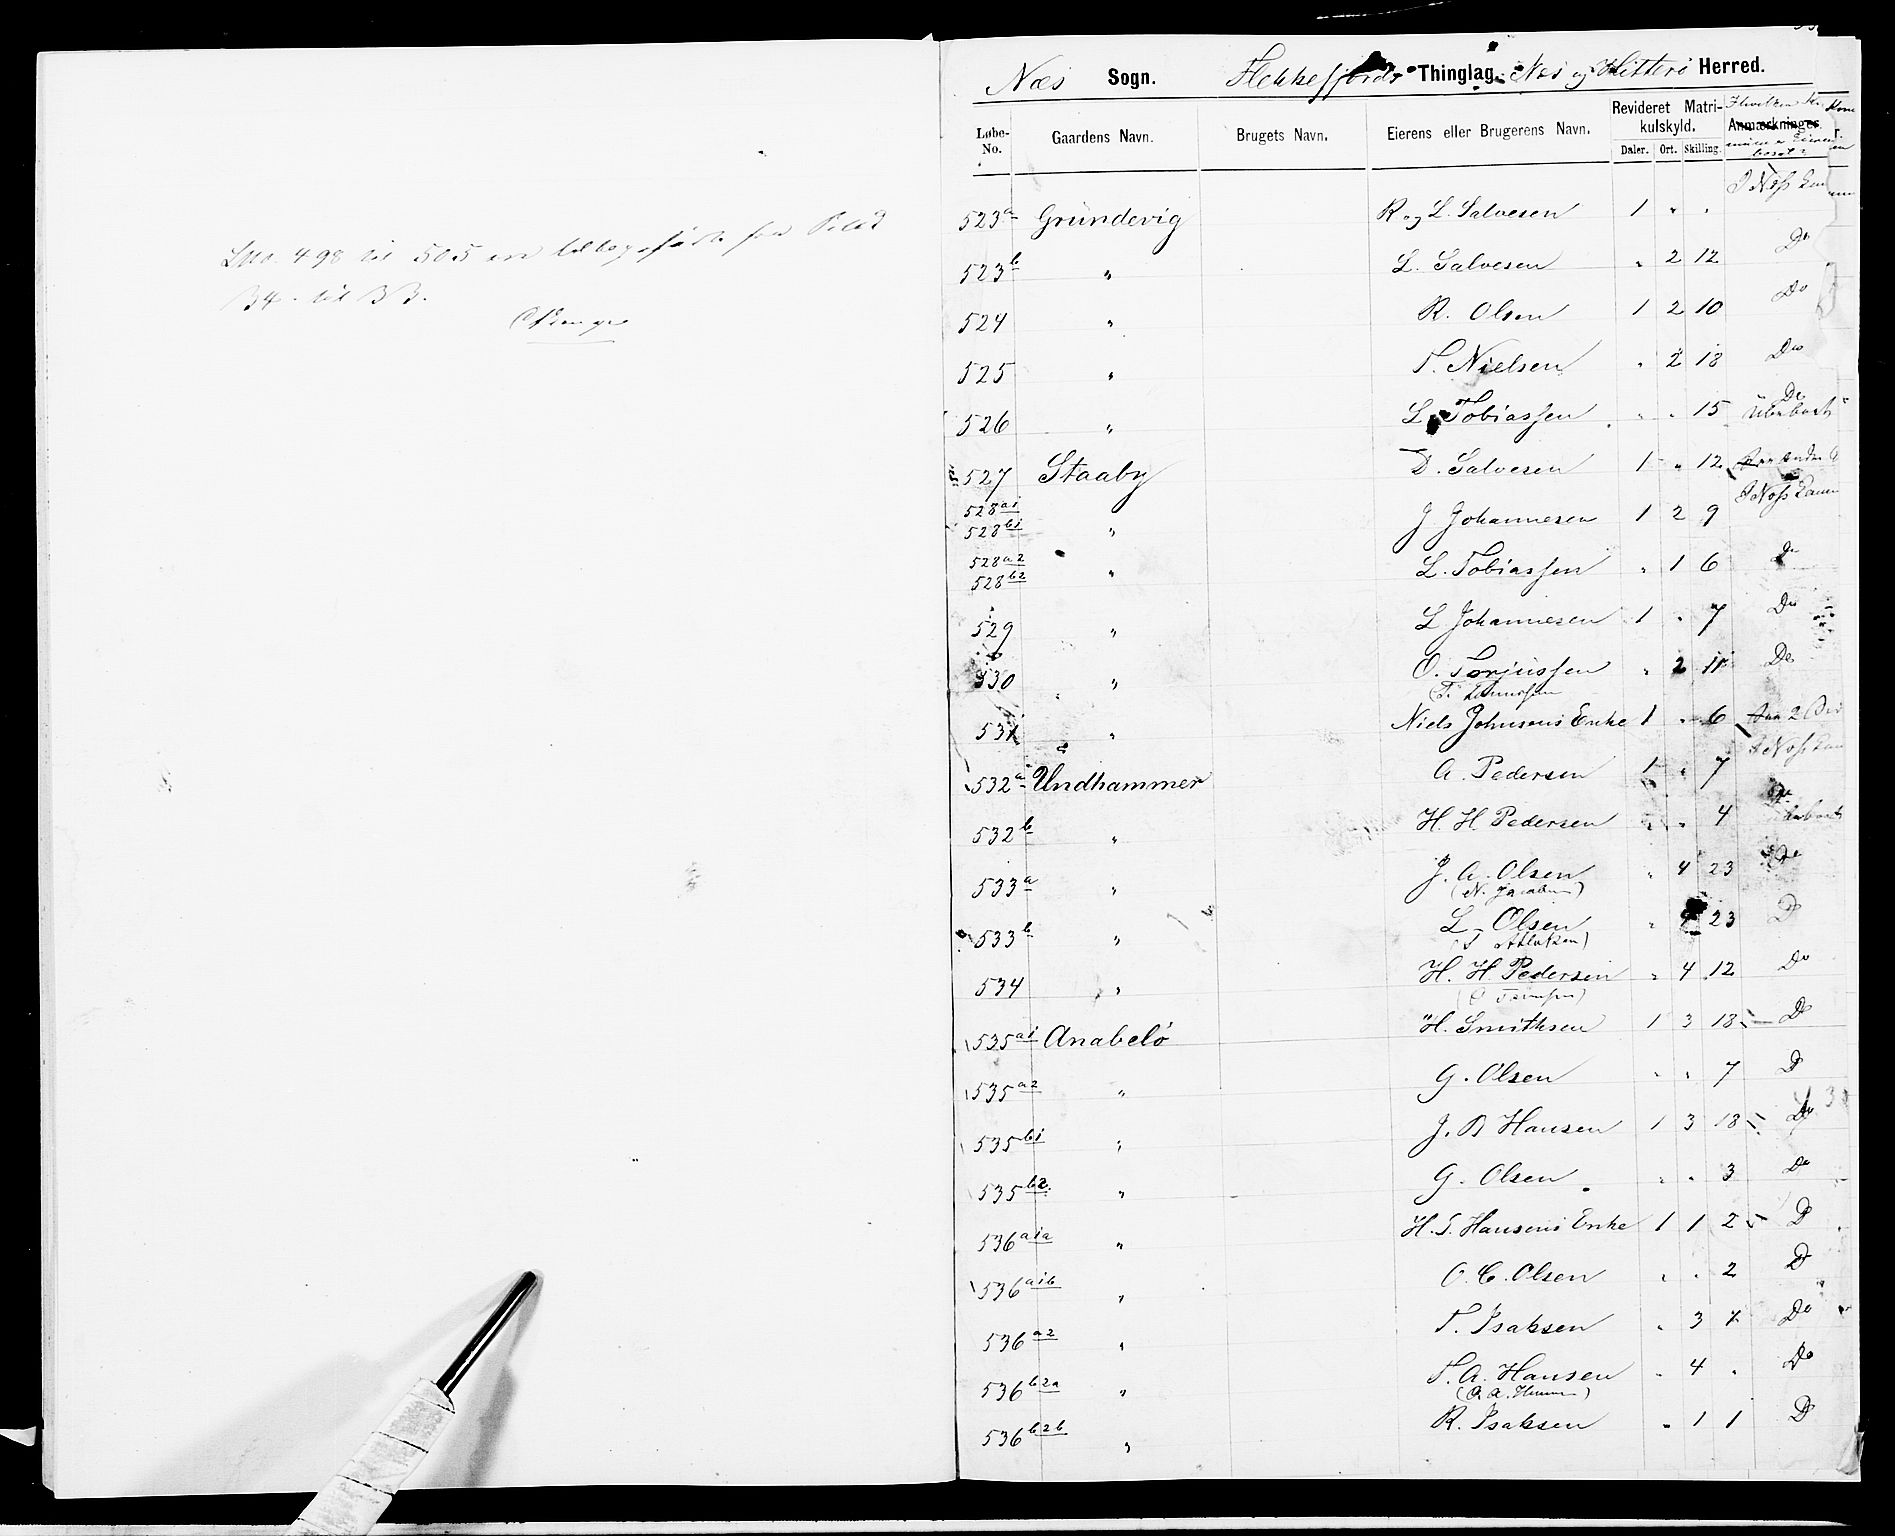 LNo. 498 til 505 er tilbageført fra
34 til 33.
Næs Sogn. Flekkefjords Thinglag. Næs og Hitterø Herred.
Løbe-No. Gaardens Navn. Brugets Navn. Eierens eller Brugerens Navn. Revideret Matrikulskyld. Anmærkninger.
Daler. Ort. Skilling.
523a Grundevig R og L. Salvesen 1 " " I Næs
523b " L. Salvesen " 2 12 Do
524 " R. Olsen 1 2 10 Do
525 " T. Nielsen " 2 18 Do
526 " L. Tobiassen " " 15 Do
527 Staaby D. Salvesen 1 " 12
528a1 528b1 " J Johannesen 1 2 9 I Næs
528a2 528b2 " L. Tobiassen " 1 6 Do
529 " L Johannesen 1 " 7 Do
530 " O. Torjussen " 2 11 Do
531 " Niels Johnsens Enke 1 " 6
532a Undhammer A. Pedersen 1 " 7 I Næs
532b " H. H. Pedersen " " 4
533a " J. A. Olsen " 4 23 Do
(N. Jacobsen)
533b " L. Olsen " 23 D
534 " H. H. Pedersen " 4 12 Do
535a1 Anabelø H. Smithsen 1 3 18 D
535a2 " G. Olsen " " 7 D
535b1 " J. B Hansen 1 3 18 Do
535b2 " G. Olsen " " 3 Do
536a1a " H. T. Hansens Enke 1 1 2 D
536a1b " O. C. Olsen " " 2 D
536a2 " T. Isaksen " 3 7 Do
536b2a " T. A. Hansen " 4 " Do
536b2b " R. Isaksen " 1 1 D